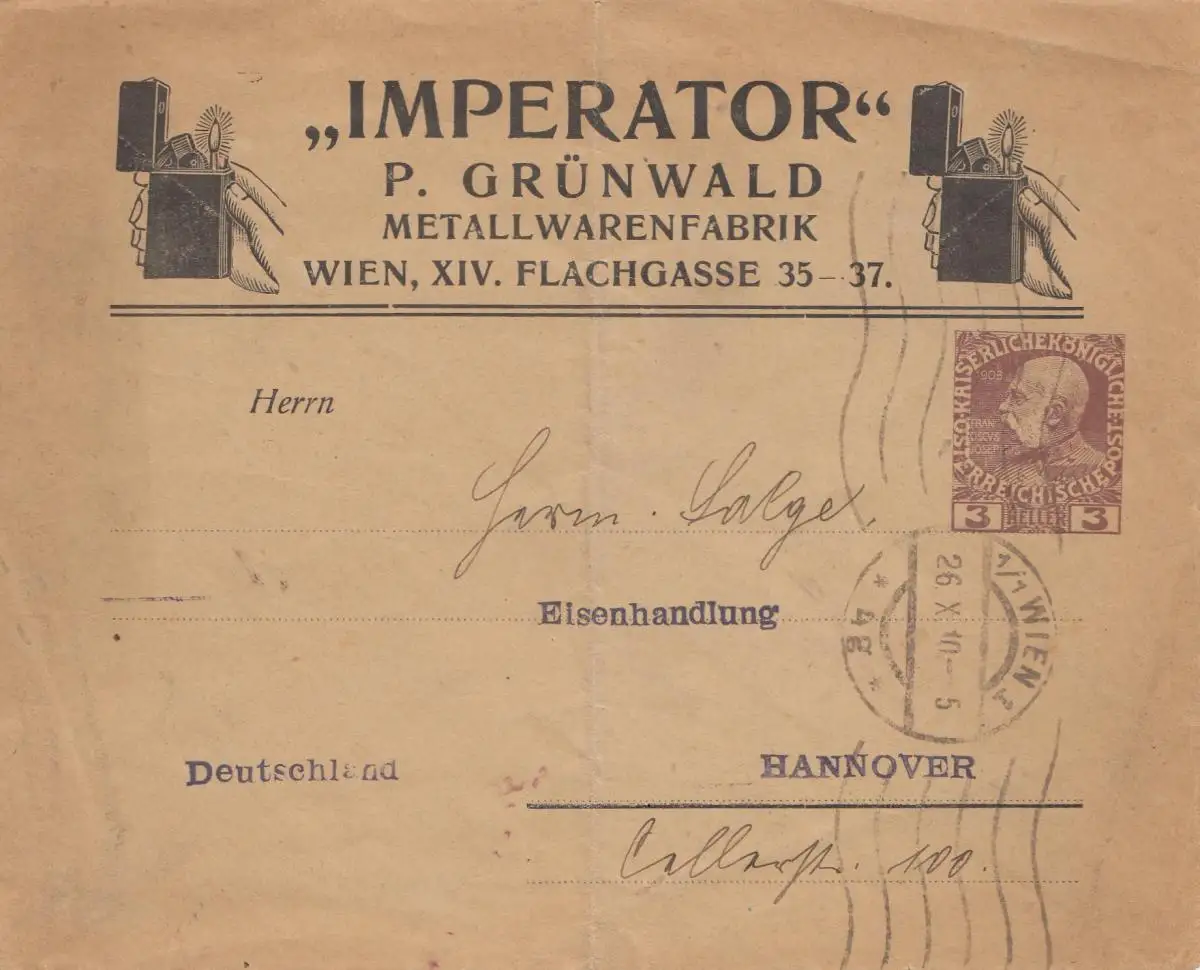 „IMPERATOR“
P. GRÜNWALD
METALLWARENFABRIK
WIEN, XIV. FLACHGASSE 35–37.
KAISERLICHEKÖNIGLICHE ÖSTERREICHISCHE POST
1908
FRAN
CISCVS
IOSEPH
3 HELLER 3
Herrn
Herm. Salge,
Eisenhandlung
1/1 WIEN 1
26 X 10 - 5
* 4g *
Deutschland
HANNOVER
Cellerstr. 100.